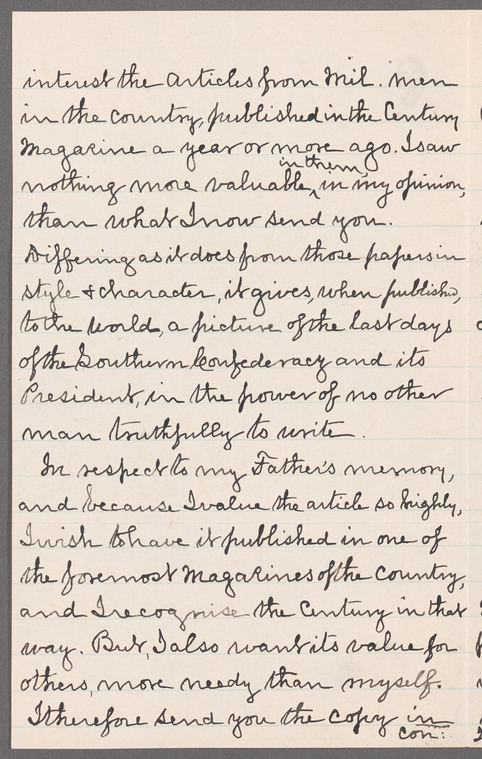 interest the articles from Mil. men
in the country, published in the Century
Magazine a year or more ago. I saw
in them,
nothing more valuable, in my opinion,
than what I now send you.
Differing as it does from those papers in
style & character, it gives, when published,
to the world, a picture of the last days
of the Southern Confederacy and its
President, in the power of no other
man truthfully to write.
In respect to my Father's memory,
and because I value the article so highly,
I wish to have it published in one of
the foremost Magazines of the Country,
and I recognise the Century in that
way. But, I also want its value for
others, more needy than myself.
I therefore send you the copy in
con: